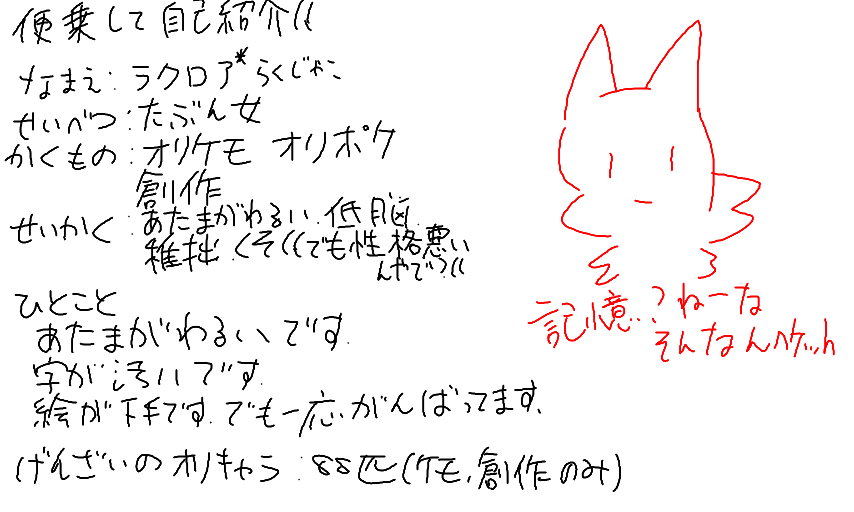 便乗して自己紹介((
なまえ:ラクロア*らくじゃこ
せいべつ:たぶん女
かくもの:オリケモ オリポケ
創作
せいかく:あたまがわるい.低脳.
稚拙.くそ((でも性格悪い
んやで?((
ひとこと
あたまがわるいです.
字が汚いです.
絵が下手です.でも一応がんばってます.
げんざいのオリキャラ:88匹(ケモ,創作のみ)
記憶..?ねーな
そんなん